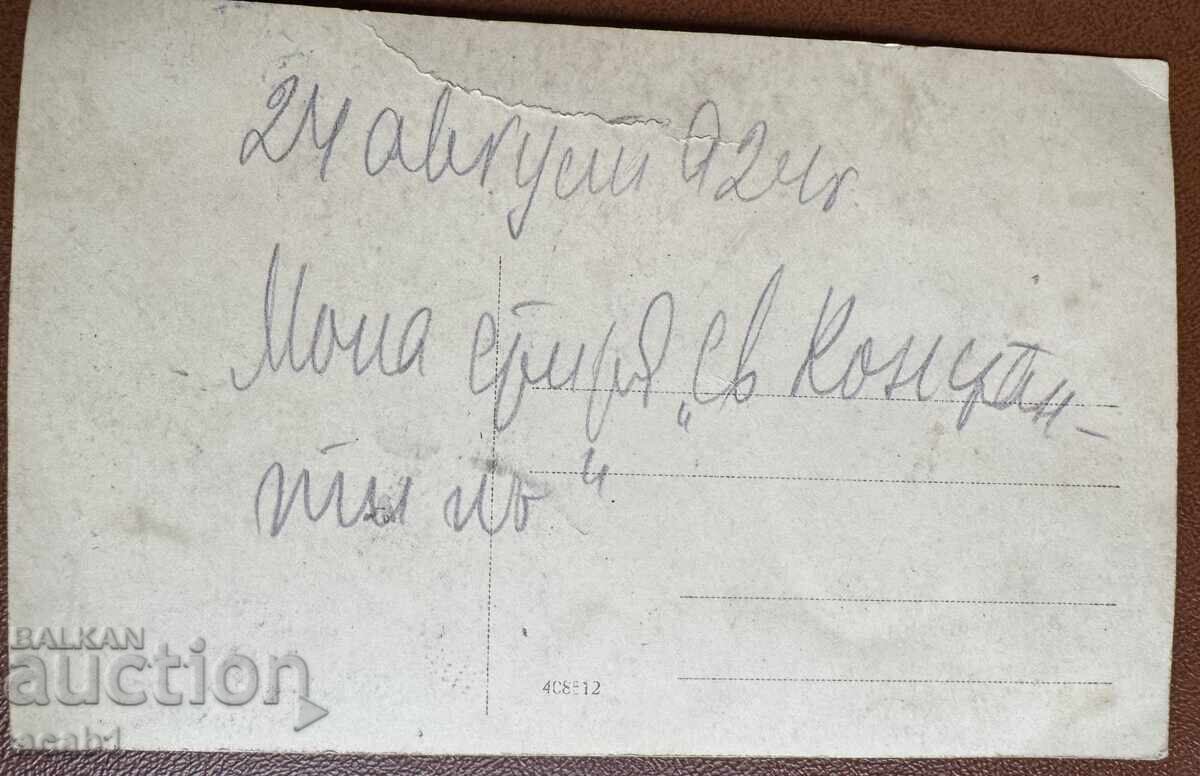 24 август 924 г.
Мона стиръ „Св Констан-
тинъ“
408512
BALKAN
auction
acab1